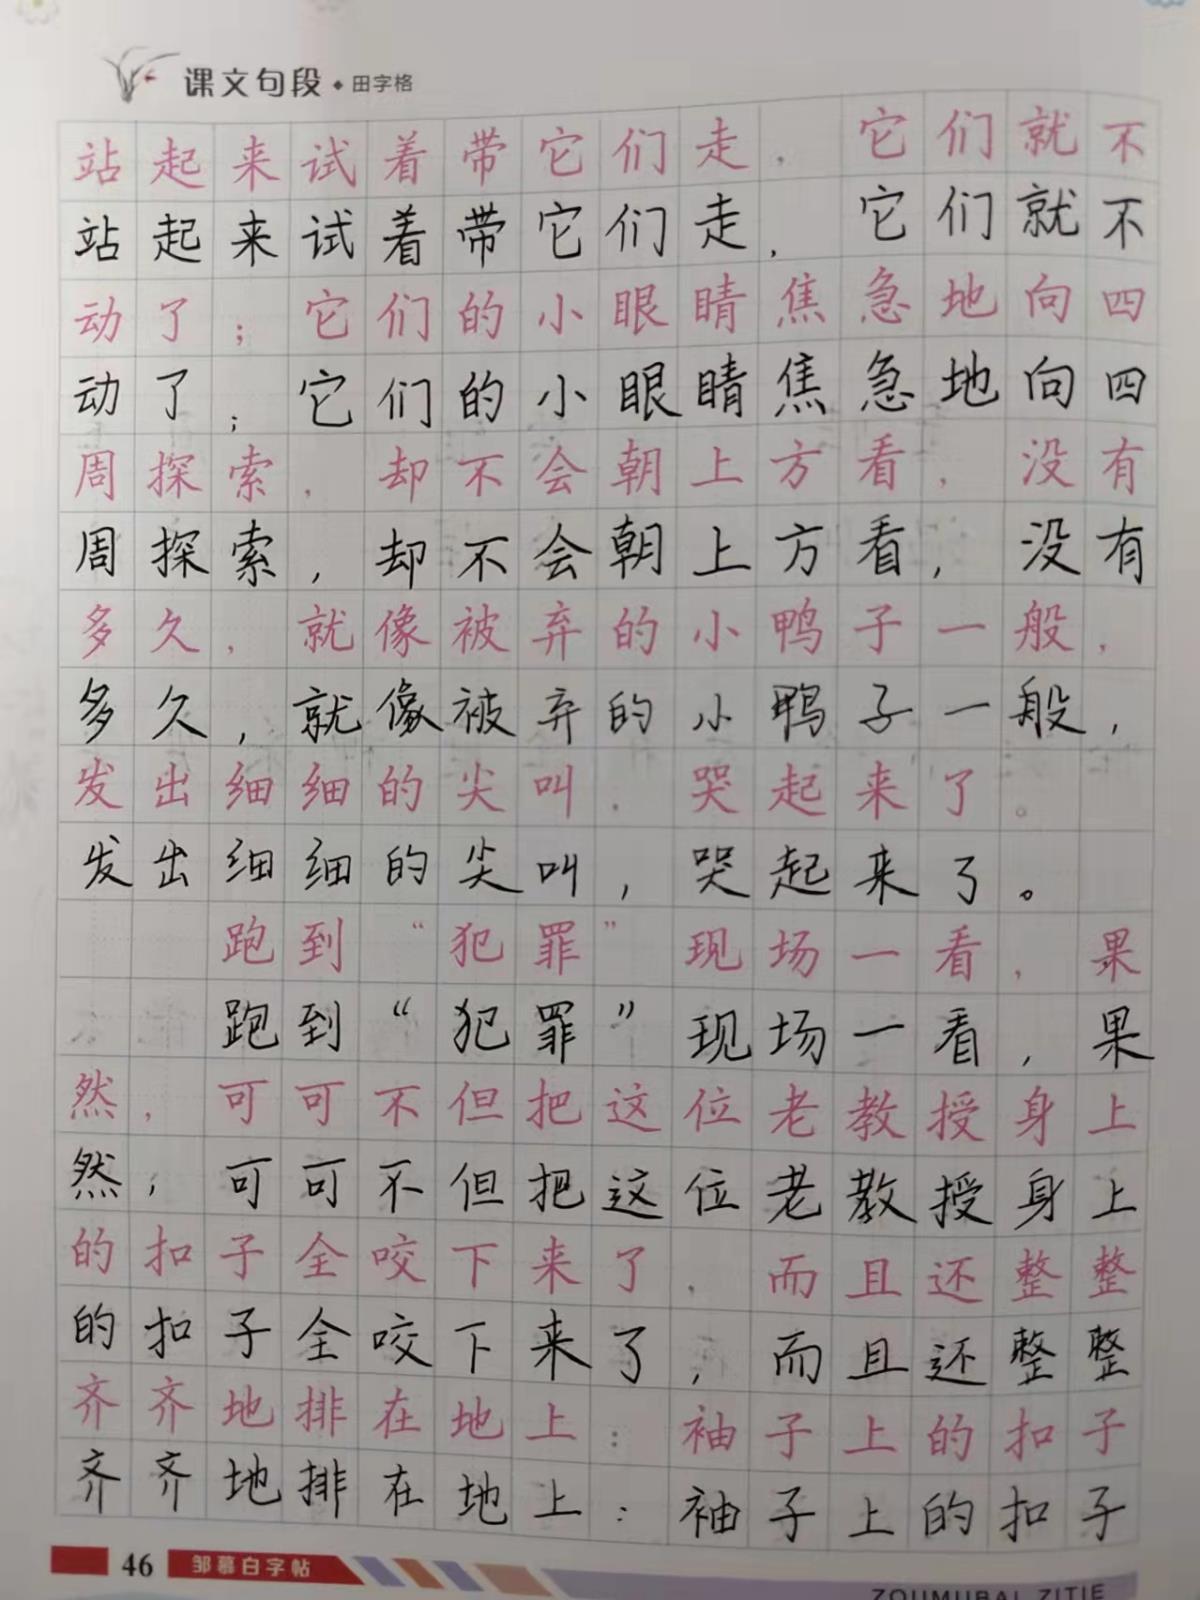 课文句段◆田字格
站起来试着带它们走，它们就不
站起来试着带它们走，它们就不
动了；它们的小眼睛焦急地向四
动了；它们的小眼睛焦急地向四
周探索，却不会朝上方看，没有
周探索，却不会朝上方看，没有
多久，就像被弃的小鸭子一般，
多久，就像被弃的小鸭子一般，
发出细细的尖叫，哭起来了。
发出细细的尖叫，哭起来了。
跑到“犯罪”现场一看，果
跑到“犯罪”现场一看，果
然，可可不但把这位老教授身上
然，可可不但把这位老教授身上
的扣子全咬下来了，而且还整整
的扣子全咬下来了，而且还整整
齐齐地排在地上：袖子上的扣子
齐齐地排在地上：袖子上的扣子
46 邹慕白字帖
ZOUMUBAI ZITIE